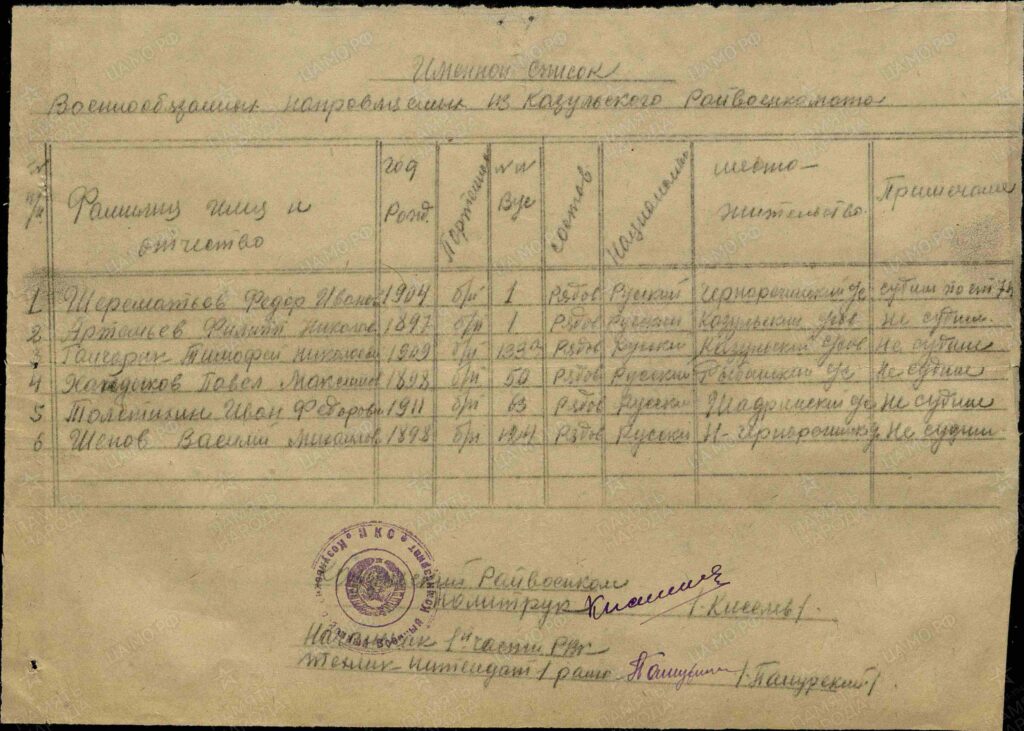 Именной список
Военнообязанных направляемых из Казульского Райвоенкомата
№ п/п | Фамилия имя и отчество | год рожд. | Партийн | №№ Вус | состав | Национальн | место-жительство | Примечание
1 | Шереметьев Федор Иванов | 1904 | б/п | 1 | Рядов | Русский | Чернореченский с/с | судим по ст
2 | Артемьев Филипп Николаев | 1897 | б/п | 1 | Рядов | Русский | Казульский | Не судим
3 | Гончарик Тимофей Николаев | 1909 | б/п | 133 | Рядов | Русский | Казульский | Не судим
4 | Павел Максимов | 1898 | б/п | 50 | Рядов | Русский | с/с | Не судим
5 | Толстихин Иван Федоров | 1911 | б/п | 63 | Рядов | Русский | Шадринский с/с | Не судим
6 | Шенов Василий Михайлов | 1898 | б/п | 124 | Рядов | Русский | Н-Чернореченск | Не судим
Райвоенком
Политрук /Киселев/.
Начальник 1й части РВК
техник-интендант 1 ранга /Пашурский/
НКО
Военный Комиссариат
ЦАМО.РФ
ПАМЯТЬ НАРОДА